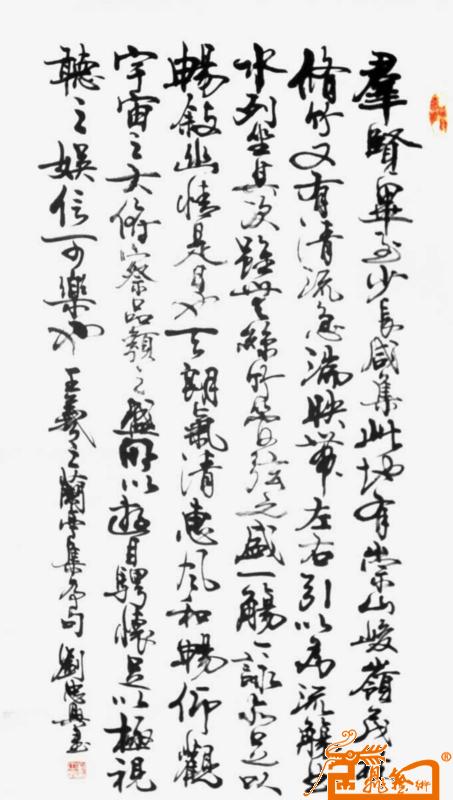 羣賢畢至少長咸集此地有崇山峻嶺茂林
脩竹又有清流急湍映帶左右引以為流觴曲
水列坐其次雖無絲竹管弦之盛一觴一詠亦足以
暢敘幽情是日也天朗氣清惠風和暢仰觀
宇宙之大俯察品類之盛所以遊目騁懷足以極視
聽之娛信可樂也 王羲之蘭亭集序句 劉忠